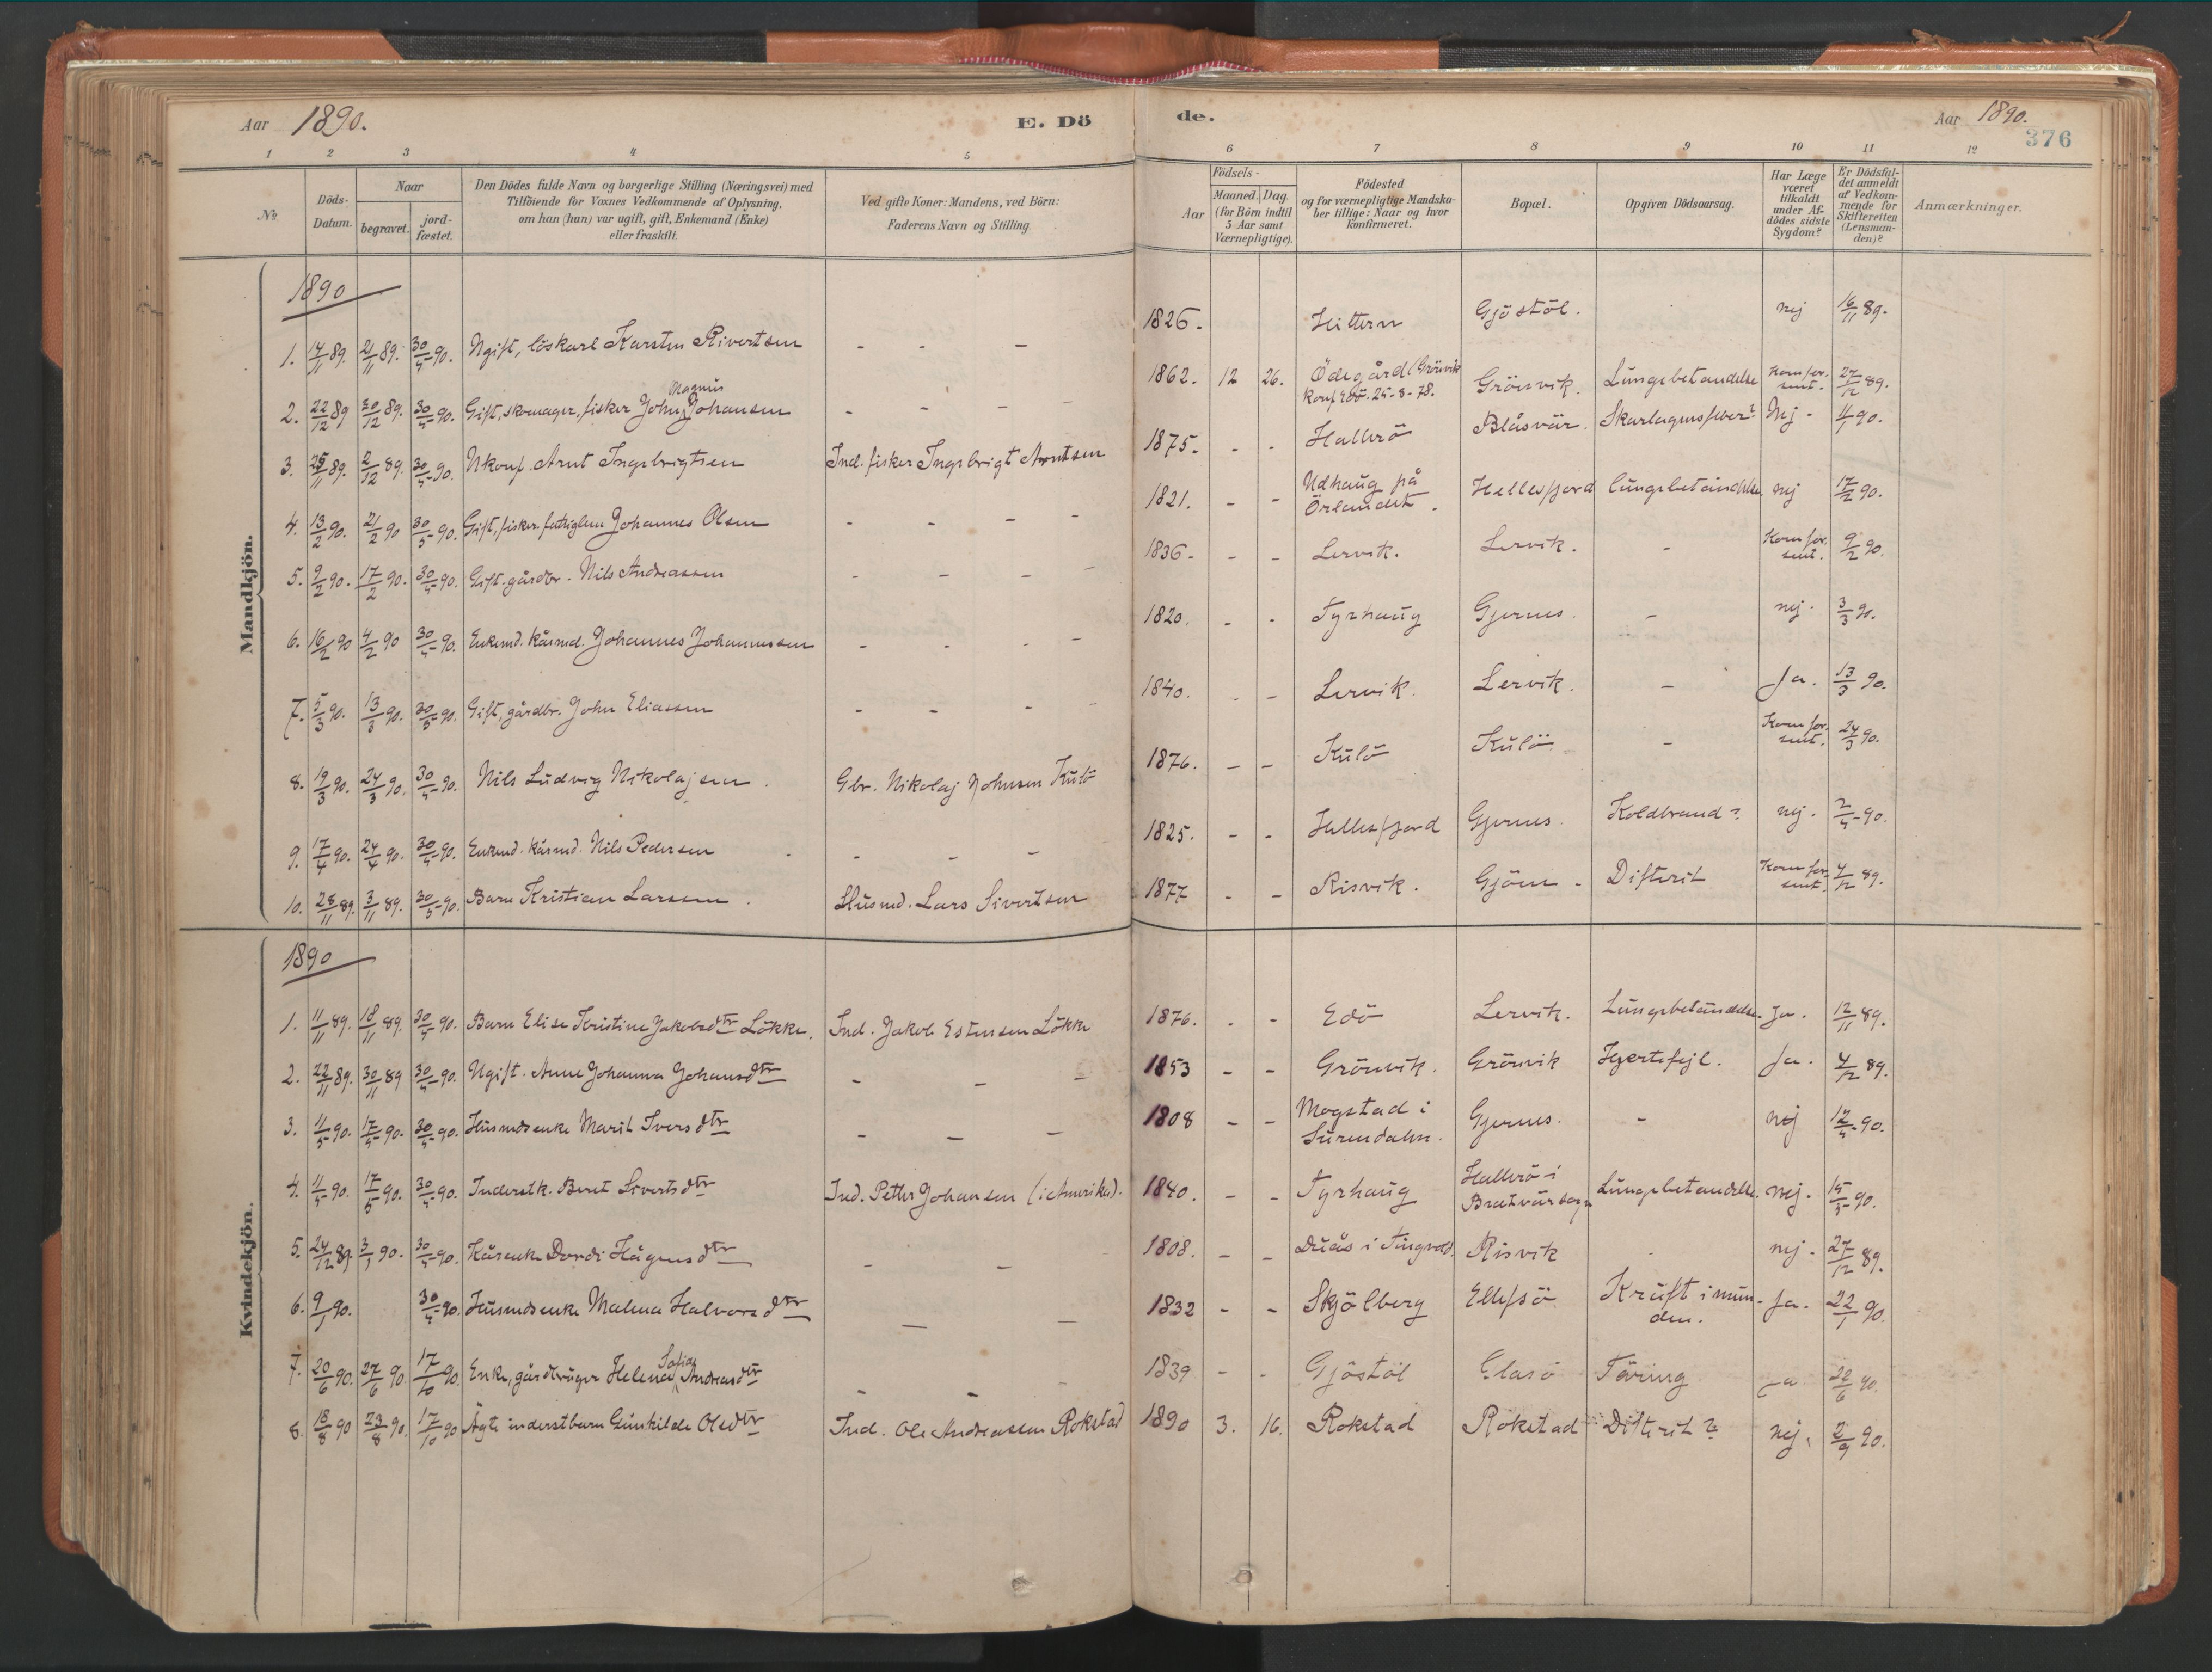 Aar 1890.
E. Dö
de.
Aar 1890.
376
1 2 3 4 5 6 7 8 9 10 11 12
№
Döds-
Datum.
Naar
begravet.
jord-
fæstet.
Den Dödes fulde Navn og borgerlige Stilling (Næringsvei) med
Tilföiende for Voxnes Vedkommende af Oplysning,
om han (hun) var ugift, gift, Enkemand (Enke)
eller fraskilt.
Ved gifte Koner: Mandens, ved Börn:
Faderens Navn og Stilling.
Födsels-
Aar
Maaned.
Dag.
(for Börn indtil
5 Aar samt
Værnepligtige).
Födested
og for værnepligtige Mandska-
ber tillige: Naar og hvor
konfirmeret.
Bopæl.
Opgiven Dödsaarsag.
Har Læge
været
tilkaldt
under Af-
dödes sidste
Sygdom?
Er Dödsfal-
det anmeldt
af Vedkom-
mende for
Skifteretten
(Lensman-
den)?
Anmærkninger.
Mandkjön.
1890
1. 14/11 89. 21/11 89. 30/5 90. Ugift, löskarl Karsten Sivertsen - - - 1826. Hittern Gjöstöl. nej 16/11 89.
2. 22/12 89 30/12 89. 30/5 90. Gift, skomager, fisker John Magnus Johansen - - - - 1862. 12 26. Ödegård (Grönvik
Konf. Edö. 25-8-78. Grönvik. Lungebetændelse Kom for
sent. 27/12 89.
3. 25/11 89. 2/12 89. 30/5 90. Ukonf. Arnt Ingebrigtsen Ind. fisker Ingebrigt Arntsen 1875. - - Hallerö Blåsvär. Skarlagensfeber? Nej - 4/1 90.
4. 13/2 90. 21/2 90 30/5 90. Gift, fisker. fattiglem Johannes Olsen - - - - 1821. - - Udhaug på
Örlandet. Hellesfjord lungebetændelse. nej 17/2 90.
5. 9/2 90. 17/2 90. 30/5 90. Gift. gårdbr. Nils Andreassen - - - - 1836. - - Lervik. Lervik. - Kom for
sent. 9/2 90.
6. 16/2 90 4/2 90 30/5 90. Enkemd. kårmd. Johannes Johannessen - - - - 1820. - - Tyrhaug Gjernes. - nej. 3/3 90.
7. 5/3 90. 13/3 90. 30/5 90. Gift, gårdbr. John Eliassen - - - - 1840. - - Lervik. Lervik. - Ja. 13/3 90.
8. 19/3 90. 24/3 90. 30/5 90. Nils Ludvig Nikolajsen. Gbr. Nikolaj Johnsen Kulö 1876. - - Kulö Kulö. - Kom for
sent. 24/3 90.
9. 17/4 90. 24/4 90. 30/5 90. Enkmd. kårmd. Nils Pedersen - - - - 1825. - - Hellesfjord Gjernes. Koldbrand? nej. 2/5 90.
10. 28/11 89. 3/11 89. 30/5 90. Barn Kristian Larssen. Husmd. Lars Sivertsen 1877 - - Risvik. Gjöen - Difterit Kom for
sent. 4/12 89.
Kvindekjön.
1890
1. 11/11 89. 18/11 89. 30/5 90. Barn Elise Kristine Jakobsdtr Lökke. Ind. Jakob Estensen Lökke 1876. - - Edö Lervik. Lungebetændelse. Ja. 12/11 89.
2. 22/11 89. 30/11 89 30/5 90. Ugift. Anne Johanna Johansdtr - - - 1853 - - Grönvik. Grönvik Hjertefejl. Ja. 4/12 89.
3. 11/5 90. 17/5 90. 30/5 90. Husmdsenke Marit Iversdtr - - - 1808 - - Mogstad i
Surendalen. Gjernes. - nej 12/5 90.
4. 11/5 90. 17/5 90. 30/5 90. Inderstk. Beret Sivertsdtr Ind. Petter Johansen (i Amerika). 1840. - - Tyrhaug Hallerö i
Bratvärsogn Lungebetændelse. nej. 15/5 90.
5. 24/12 89. 3/1 90. 30/5 90. Kårenke Dordi Hågensdtr - - 1808. - - Duås i Tingvold. Risvik - nej. 27/12 89.
6. 9/1 90. 30/5 90. Husmdsenke Malena Halvorsdtr - - 1832 - - Skjölberg Ellefsö Kräft i mun-
den. Ja. 22/1 90.
7. 20/6 90. 27/6 90. 17/10 90. Enke, gårdbruger Helena Sofia Andreasdtr - - - 1839 - - Gjöstöl Glasö Täring ja 22/6 90.
8. 18/8 90 23/8 90. 17/10 90 Ägte inderstbarn Gunhilde Olsdtr Ind. Ole Andreassen Rokstad 1890 3. 16. Rokstad Rokstad Difterit? nej. 2/9 90.